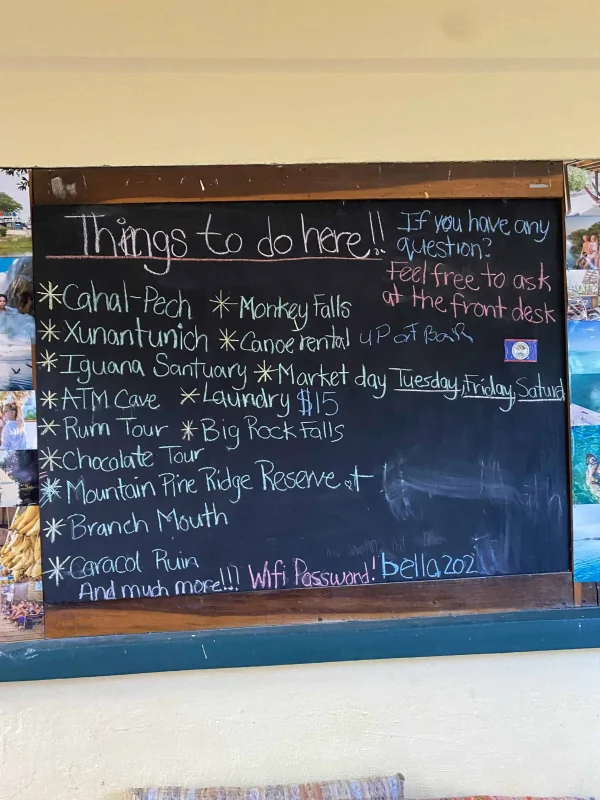 Things to do here!!
If you have any
question?
feel free to ask
at the front desk
*Cahal-Pech *Monkey Falls
*Xunantunich *Canoe rental
*Iguana Santuary *Market day Tuesday, Friday, Saturd
*ATM Cave *Laundry $15
*Rum Tour *Big Rock Falls
*Chocolate Tour
*Mountain Pine Ridge Reserve
*Branch Mouth
*Caracol Ruin
And much more!!! Wifi Password! bella202